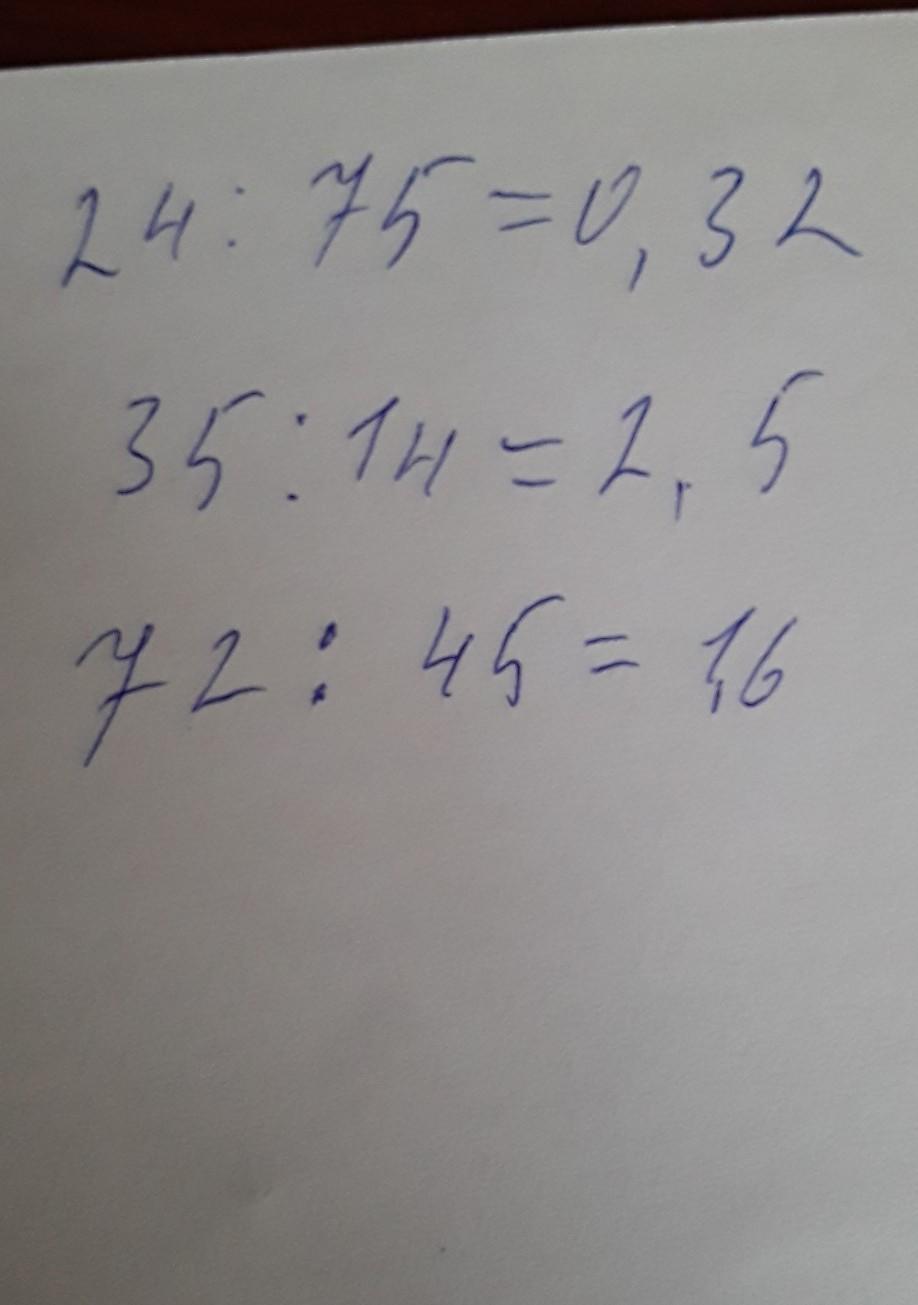 24: 75 =0,32
35:14 = 2,5
72: 45= 1,6